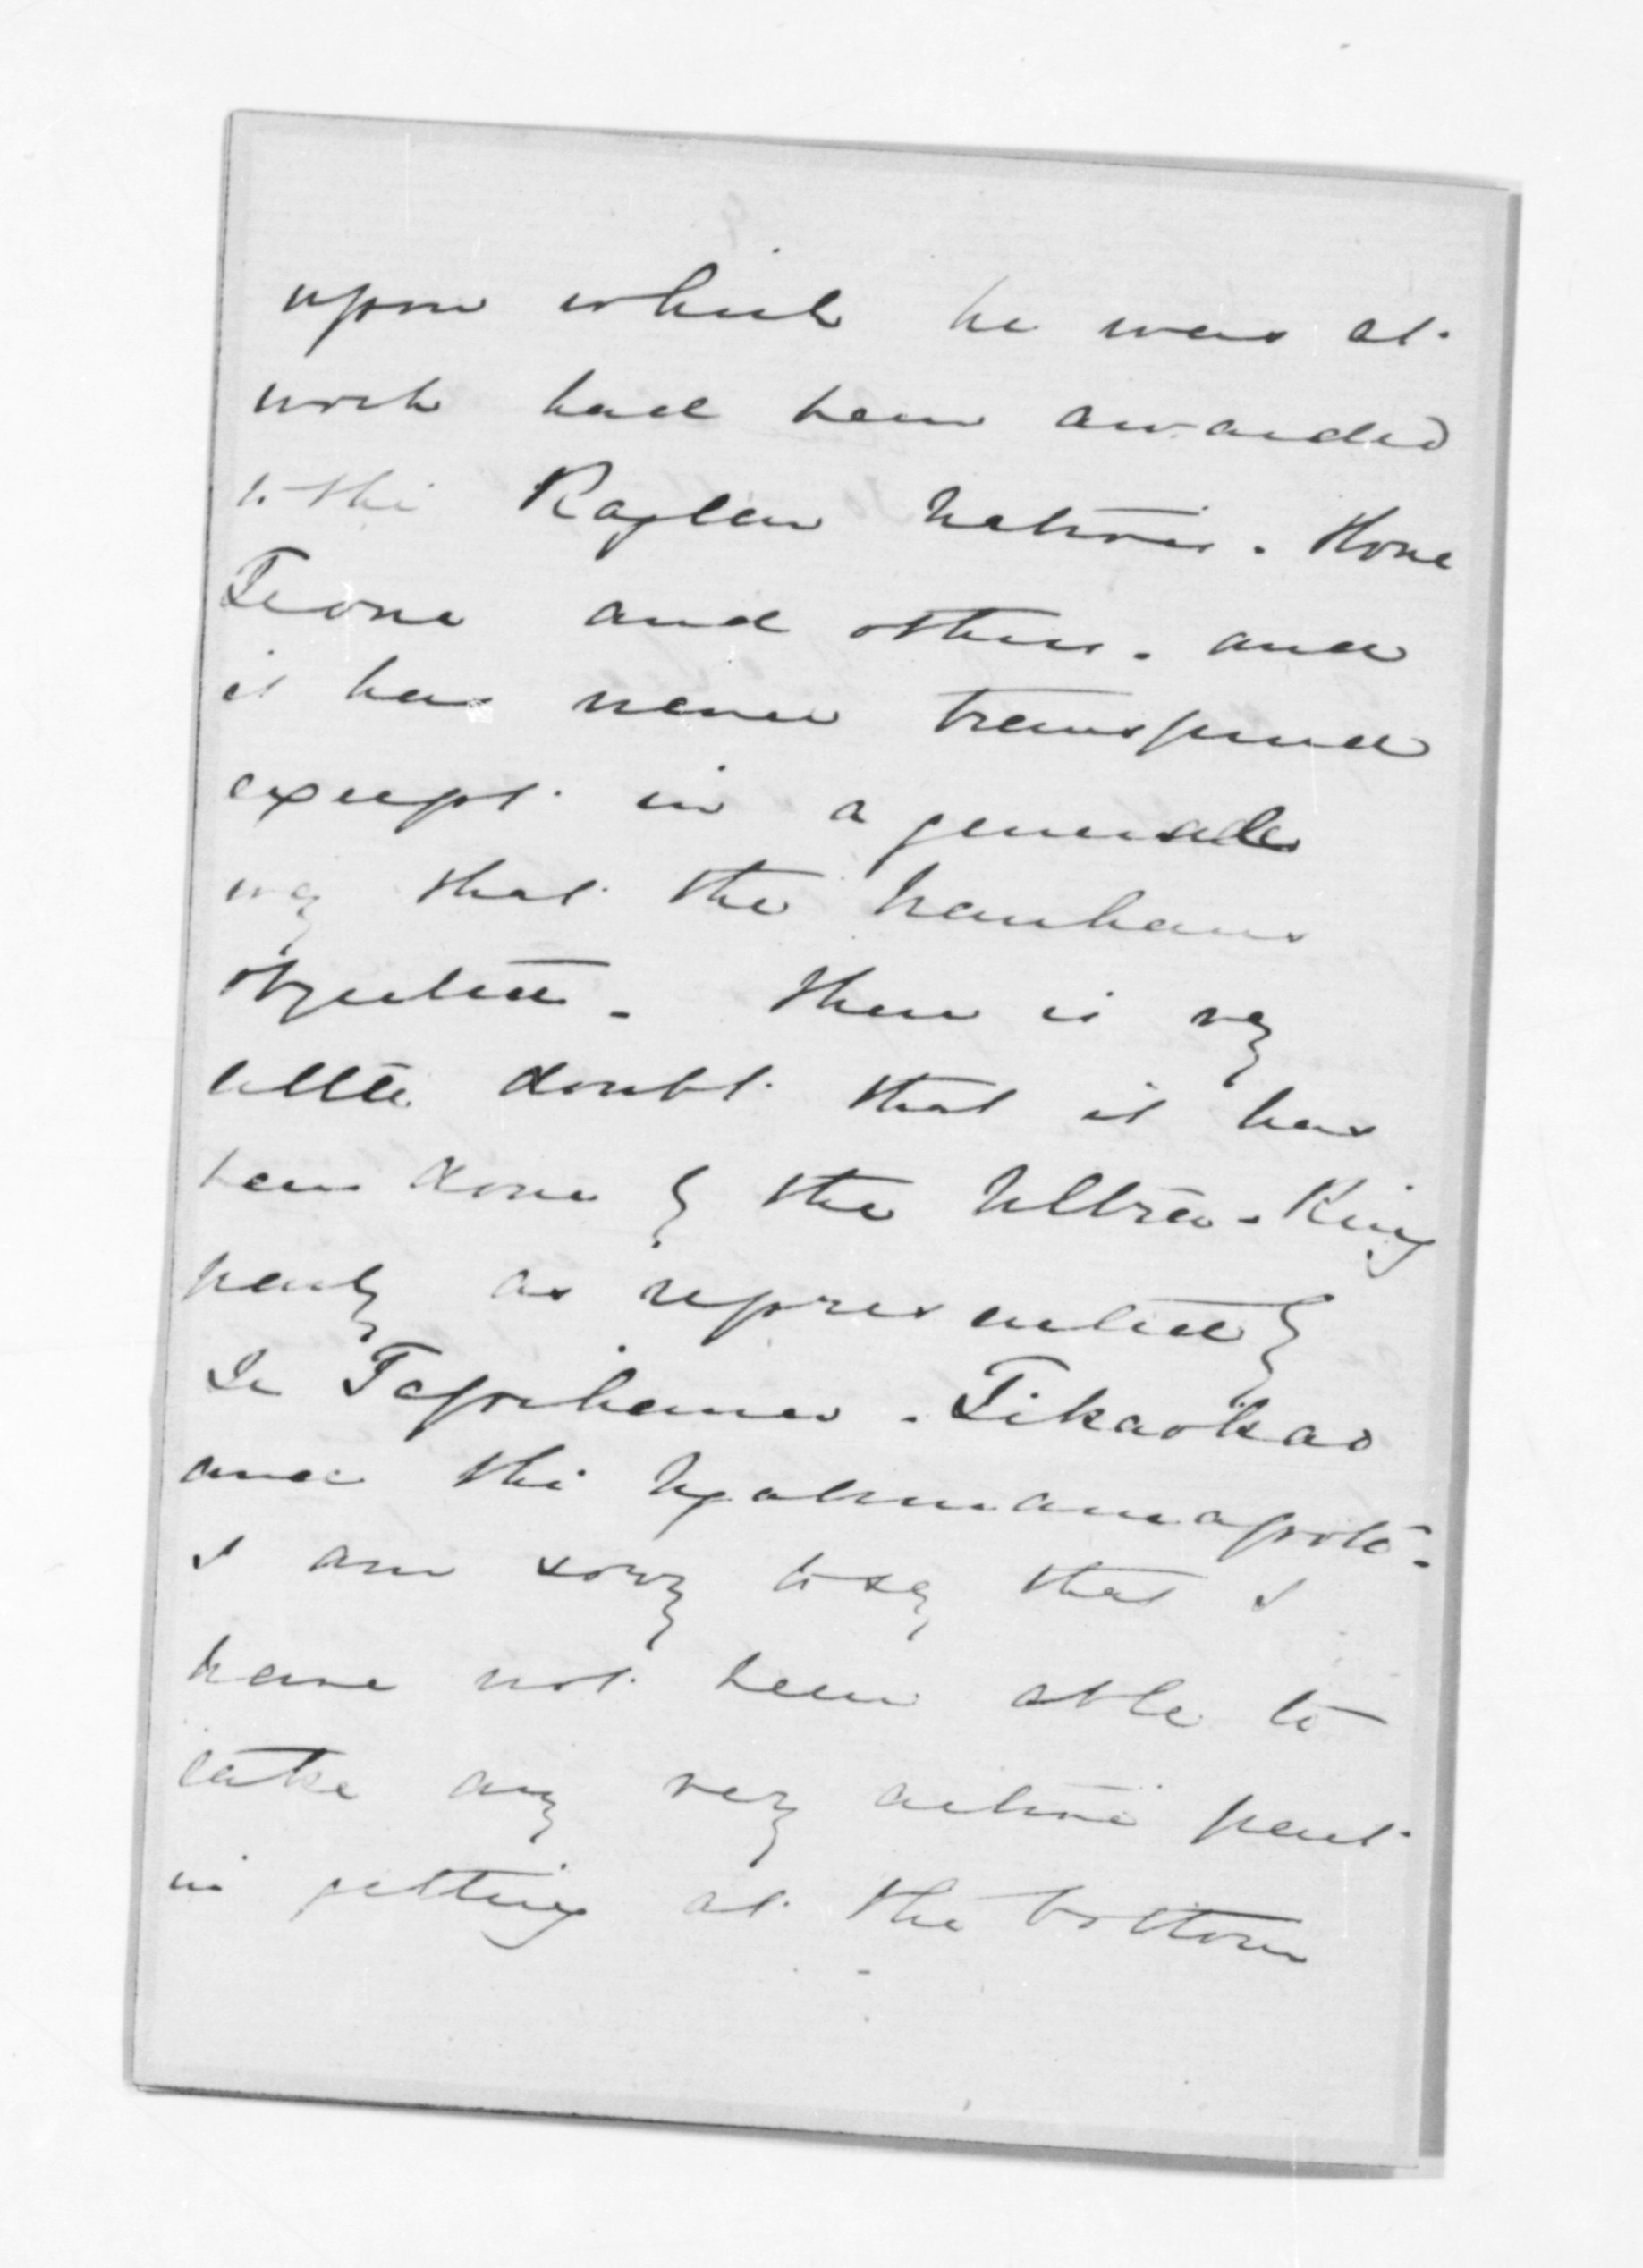 upon which he was at
work had been awarded
to the Raglan Natives. Hone
Teone and others. and
it has never transpired
except in a general
way that the Hauhaus
objected. There is very
little doubt that it has
been done by the Ultra-King
party as represented by
Te Tapihana. Tikaokao
and the Ngatimaniapoto.
I am sorry to say that I
have not been able to
take any very active part
in getting at the bottom